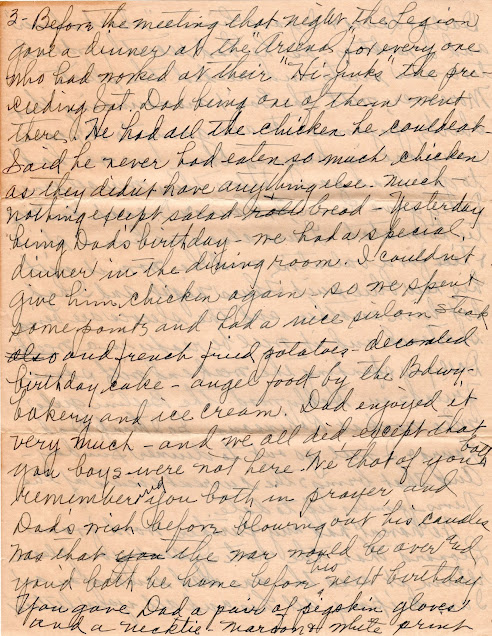 3- Before the meeting that night the Legion
gave a dinner at the "Arsenal" for every one
who had worked at their "Hi-Jinks" the pre-
ceeding Sat. Dad being one of them went
there. He had all the chicken he could eat-
Said he never had eaten so much chicken
as they didn't have anything else - much-
nothing except salad rolls bread - Yesterday
being Dad's birthday - we had a special
dinner in the dining room. I couldn't
give him chicken again - so we spent
some points and had a nice sirloin steak
also and french fried potatoes - decorated
birthday cake - angel food by the Bdwy-
bakery and ice cream. Dad enjoyed it
very much - and we all did, except that
you boys were not here. We that of you both
remembering you both in prayer and
Dad's wish before blowing out his candles
was that you the war would be over and
you'd both be home before his next birthday
You gave Dad a pair of pigskin gloves
and a necktie. Maroon & white print